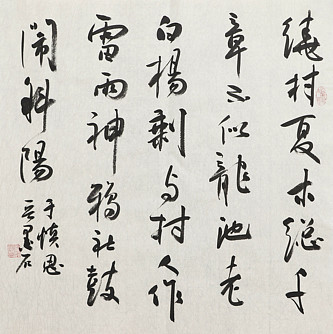 繞村夏木總千
章不似龍池老
白楊剩与村人作
雷雨神鴉社鼓
鬧斜陽
于慎思